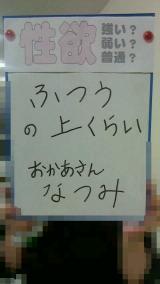 性欲
強い?
弱い?
普通?
ふつう
の上くらい
おかあさん
なつみ